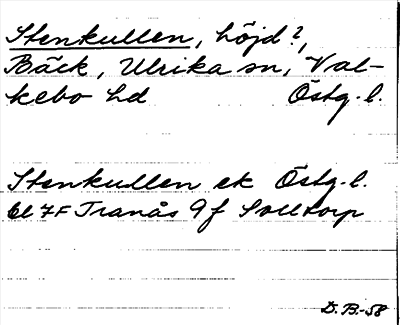 Stenkullen, höjd?,
Bäck, Ulrika sn, Val-
kebo hd Östg. l.
Stenkullen ek Östg. l.
bl 7F Tranås 9f Solltorp
D. B.-58